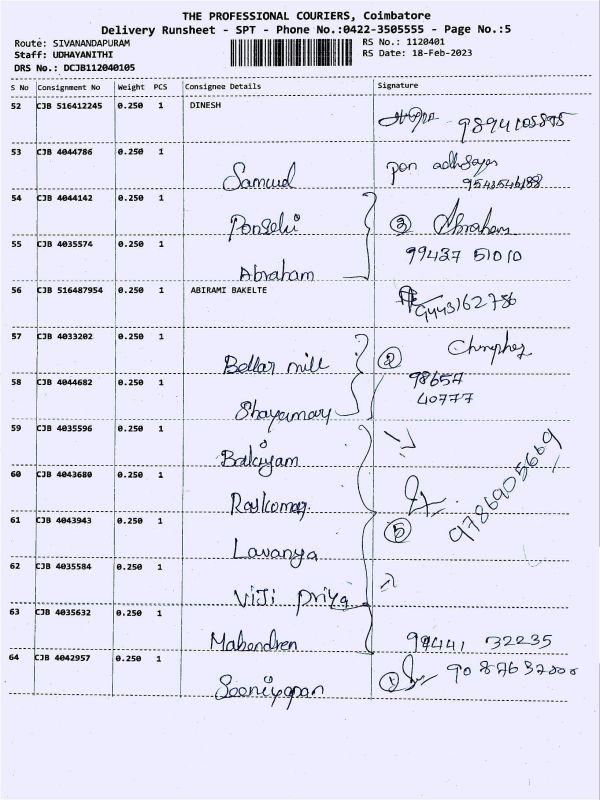 THE PROFESSIONAL COURIERS, Coimbatore
Delivery Runsheet - SPT - Phone No.:0422-3505555 - Page No.:5
Route: SIVANANDAPURAM RS No.: 1120401
Staff: UDHAYANITHI RS Date: 18-Feb-2023
DRS No.: DCJB112040105
S No Consignment No Weight PCS Consignee Details Signature
52 CJB 516412245 0.250 1 DINESH
53 CJB 4044786 0.250 1 Samuel pon
9543546188
54 CJB 4044142 0.250 1 Ponselvi 3 Abraham
99437 51010
55 CJB 4035574 0.250 1 Abraham
56 CJB 516487954 0.250 1 ABIRAMI BAKELTE
9443162786
57 CJB 4033202 0.250 1 Bellar mill 2
98657
40777
58 CJB 4044682 0.250 1
59 CJB 4035596 0.250 1 Bakiyam
60 CJB 4043680 0.250 1 Rajkumar 9786905669
61 CJB 4043943 0.250 1 Lavanya 5
62 CJB 4035584 0.250 1 Viji Priya
63 CJB 4035632 0.250 1 Mahendren 99441 32235
64 CJB 4042957 0.250 1 1